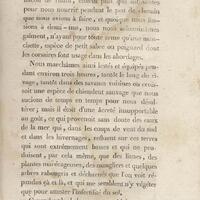 pour nous nourrir pendant le peu de chemin
que nous avions à faire, et quoique nous fus-
sions à demi-nus, nous nous acheminâmes
gaîment, n'ayant pour toute arme qu'une man-
chette, espèce de petit sabre ou poignard dont
les corsaires font usage dans les abordages.
Nous marchâmes ainsi lestés et équipés pen-
dant environ trois heures, tantôt le long du ri-
vage, tantôt dans des savanes voisines où crois-
soit une espèce de chiendent sauvage que nous
sucions de temps en temps pour nous désal-
térer; mais il étoit d'une âcreté insupportable
au goût, ce qui provenoit sans doute des eaux
de la mer qui, dans les coups de vent du sud
et dans les hivernages, refluent sur ces terres
qui sont extrêmement basses et qui ne pro-
duisent, par cela même, que des lianes, des
plantes marécageuses, des mangliers et quelques
arbres rabougris et décharnés que l'on voit ré-
pandus çà et là, et qui me semblent n'y végéter
que pour attester l'infertilité du sol.